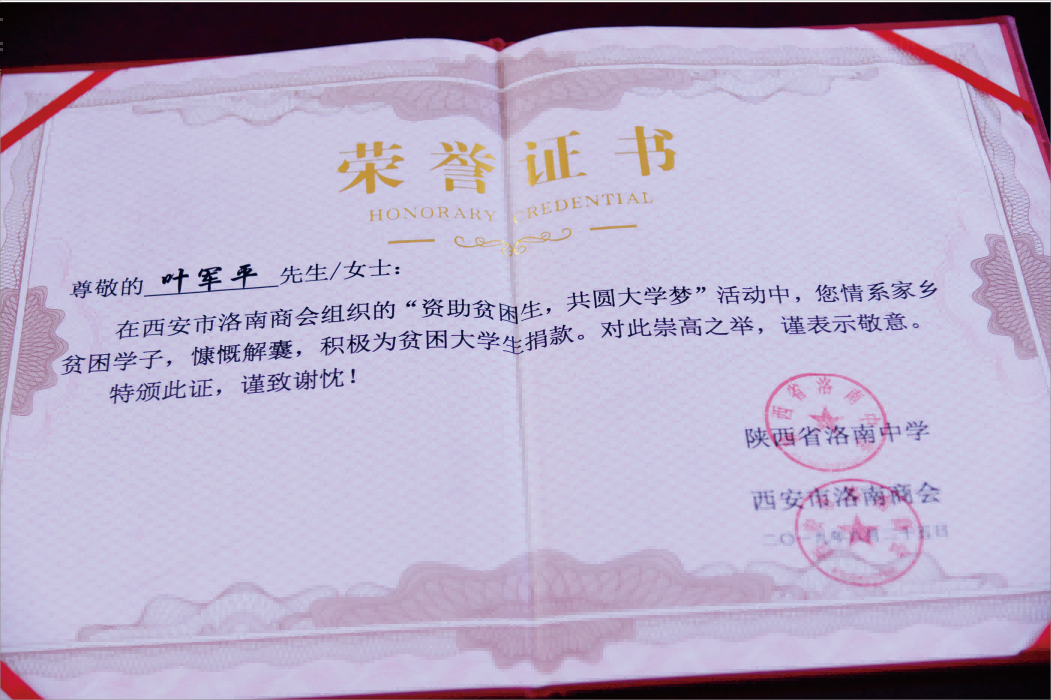 荣誉证书
HONORARY CREDENTIAL
尊敬的 叶军平 先生/女士：
在西安市洛南商会组织的“资助贫困生，共圆大学梦”活动中，您情系家乡
贫困学子，慷慨解囊，积极为贫困大学生捐款。对此崇高之举，谨表示敬意。
特颁此证，谨致谢忱！
陕西省洛南中学
西安市洛南商会
二〇一九年八月二十五日